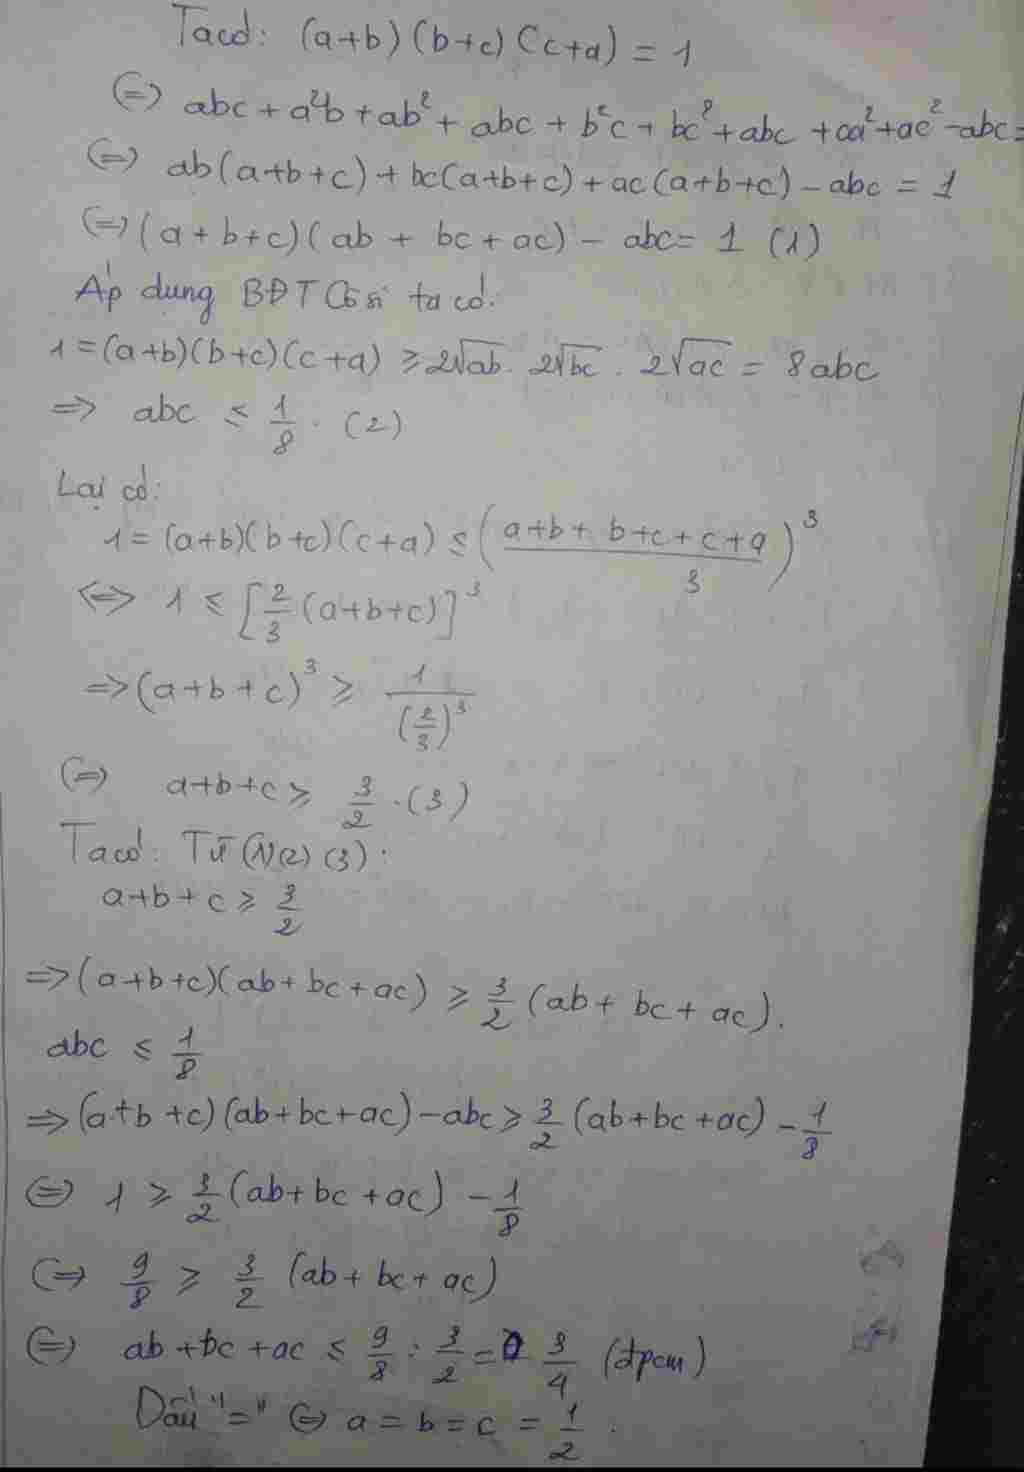 Ta có: (a+b)(b+c)(c+a) = 1
(=) abc + a²b + ab² + abc + b²c + bc² + abc + ca² + ac² - abc =
(=) ab(a+b+c) + bc(a+b+c) + ac(a+b+c) - abc = 1
(=) (a+b+c)(ab + bc + ac) - abc = 1 (1)
Áp dung BĐT Cô si ta có:
1 = (a+b)(b+c)(c+a) ≥ 2√ab . 2√bc . 2√ac = 8abc
=> abc ≤ 1/8 . (2)
Lại có:
1 = (a+b)(b+c)(c+a) ≤ ((a+b+b+c+c+a)/3)³
<=> 1 ≤ [2/3 (a+b+c)]³
=> (a+b+c)³ ≥ 1/(2/3)³
(=) a+b+c ≥ 3/2 . (3)
Ta có: Từ (1)(2)(3):
a+b+c ≥ 3/2
=> (a+b+c)(ab+bc+ac) ≥ 3/2 (ab+bc+ac).
abc ≤ 1/8
=> (a+b+c)(ab+bc+ac) - abc ≥ 3/2 (ab+bc+ac) - 1/8
(=) 1 ≥ 3/2 (ab+bc+ac) - 1/8
(=) 9/8 ≥ 3/2 (ab+bc+ac)
(=) ab+bc+ac ≤ 9/8 : 3/2 = 3/4 (đpcm)
Dấu "=" (=) a = b = c = 1/2 .